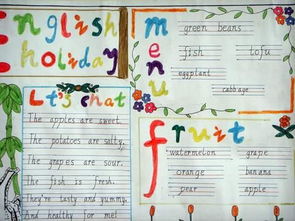 English
holiday
menu
green beans
fish
tofu
eggplant
cabbage
Let's chat
The apples are sweet.
The potatoes are salty.
The grapes are sour.
The fish is fresh.
They're tasty and yummy.
and healthy for me!
fruit
watermelon
grape
orange
banana
pear
apple